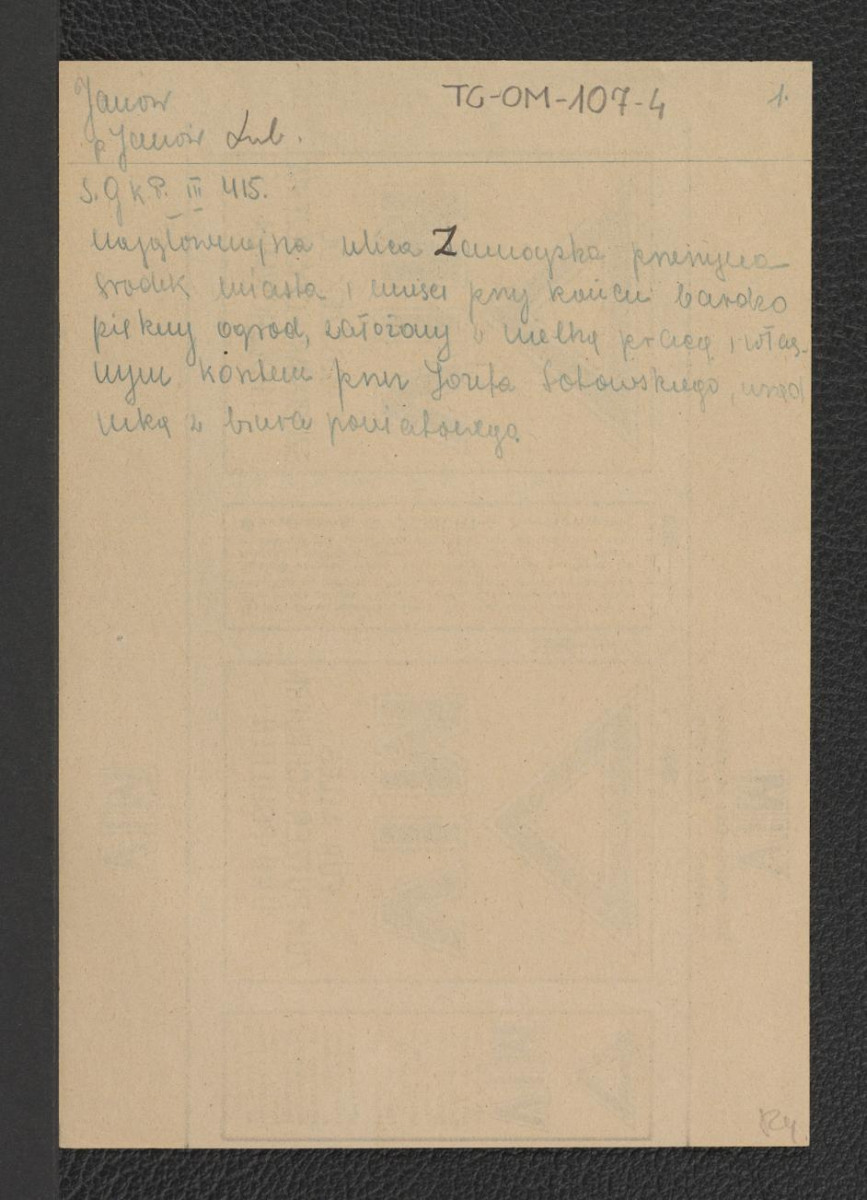 Janów TG-OM-107-4 1.
p Janów Lub.
S.GKP. III 415.
Najgłówniejsza ulica Zamoyska przerzyna
środek miasta i mieści przy końcu bardzo
piękny ogród, założony z wielką pracą i włas-
nym kosztem przez Józefa Sotowskiego, urzęd
nika z biura powiatowego